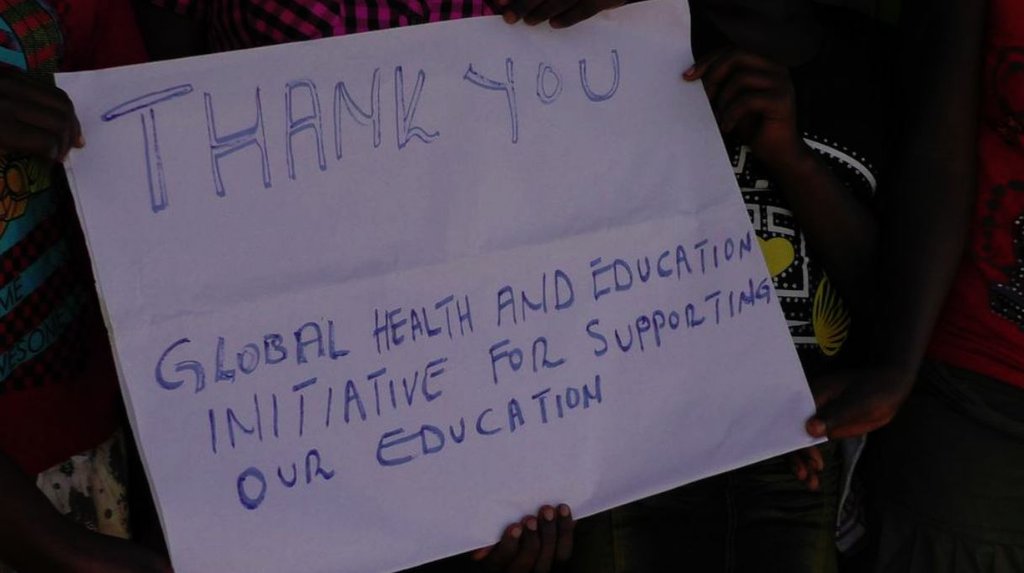 THANK YOU
GLOBAL HEALTH AND EDUCATION
INITIATIVE FOR SUPPORTING
OUR EDUCATION
ME
AWESOME